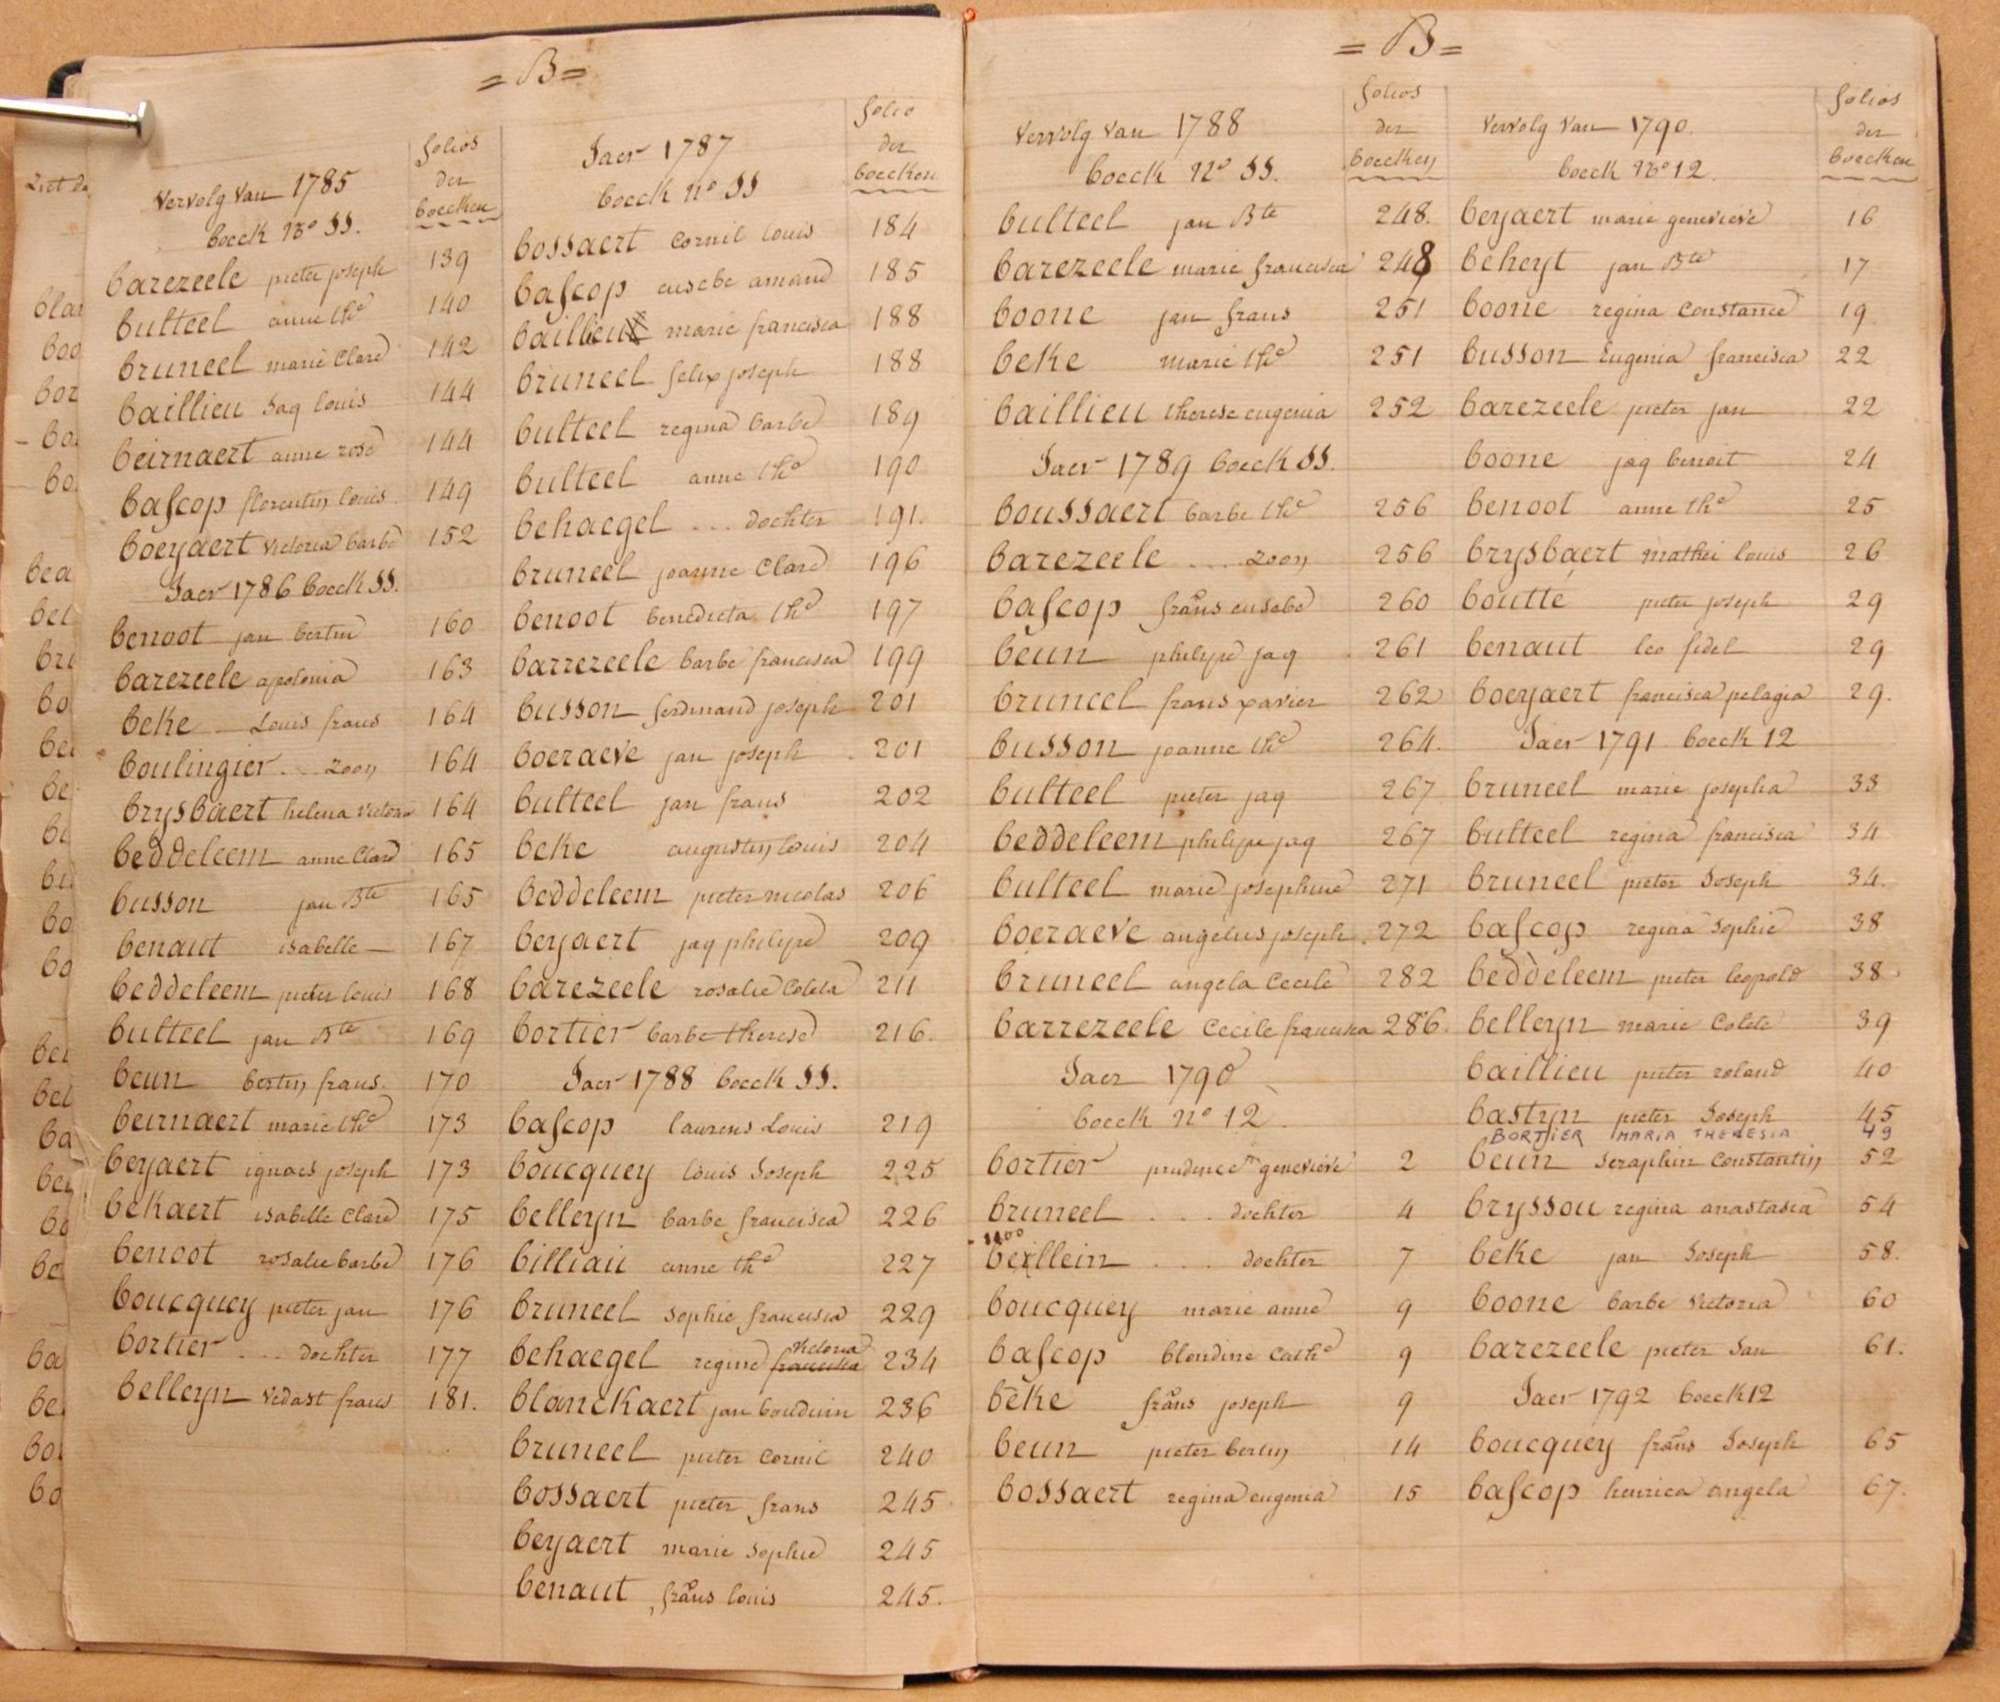 = B =
folios
der
boecken
vervolg van 1785
boeck No SS.
barezeele pieter joseph 139
bulteel anne the 140
bruneel marie Clare 142
baillieu Jaq louis 144
beirnaert anne rose 144
bascop florentin louis 149
boeyaert victoria barbe 152
Jaer 1786 boeck SS.
benoot jan bertin 160
barezeele apolonia 163
beke Louis frans 164
boulingier ... zoon 164
brysbaert helena victoria 164
beddeleem anne Clare 165
busson jan Bte 165
benaut isabelle 167
beddeleem pieter louis 168
bulteel jan Bte 169
beun bertin frans. 170
beirnaert marie the 173
beyaert ignaes joseph 173
bekaert isabelle Clare 175
benoot rosalie barbe 176
boucquey pieter jan 176
bortier ... dochter 177
belleyn vedast frans 181.
folio
der
boecken
Jaer 1787
boeck no SS
bossaert Cornil louis 184
bascop eusebe amand 185
baillieu marie francisca 188
bruneel felix joseph 188
bulteel regina barbe 189
bulteel anne the 190
behaegel ... dochter 191.
bruneel joanne Clare 196
benoot benedicta the 197
barrezeele barbe francisca 199
busson ferdinand joseph 201
boeraeve jan joseph 201
bulteel jan frans 202
beke augustin louis 204
beddeleem pieter nicolas 206
beyaert jaq philipe 209
barezeele rosalie Coleta 211
bortier barbe therese 216.
Jaer 1788 boeck SS.
bascop laurens Louis 219
boucquey louis Joseph 225
belleyn barbe francisca 226
billiau anne the 227
bruneel sophie francisca 229
victoria
behaegel regine francisca 234
blanckaert jan bouduin 236
bruneel pieter Cornil 240
bossaert pieter frans 245
beyaert marie sophie 245
benaut frans louis 245.
= B =
folios
der
boecken
vervolg van 1788
boeck No SS.
bulteel jan Bte 248.
barezeele marie francisca 248
boone jan frans 251
beke marie the 251
baillieu therese eugenia 252
Jaer 1789 boeck SS.
boussaert barbe the 256
barezeele .... zoon 256
bascop frans eusebe 260
beun philipe jaq 261
bruneel frans xavier 262
busson joanne the 264.
bulteel pieter jaq 267
beddeleem philipe jaq 267
bulteel marie josephine 271
boeraeve angelus joseph 272
bruneel angela Cecile 282
barrezeele Cecile francisca 286.
Jaer 1790
boeck no 12
bortier prudence genevieve 2
bruneel ... dochter 4
bexllein ... dochter 7
boucquey marie anne 9
bascop blondine Cathe 9
beke frans joseph 9
beun pieter bertin 14
bossaert regina eugenia 15
folios
der
boecken
vervolg van 1790.
boeck No 12.
beyaert marie genevieve 16
beheyt jan Bte 17
boone regina Constance 19
busson Eugenia francisca 22
barezeele pieter jan 22
boone jaq benoit 24
benoot anne the 25
brysbaert mathei louis 26
boutté pieter joseph 29
benaut leo fidel 29
boeyaert francisca pelagia 29.
Jaer 1791 boeck 12
bruneel marie josepha 33
bulteel regina francisca 34
bruneel pieter Joseph 34.
bascop regina Sophie 38
beddeleem pieter leopold 38
belleyn marie Colete 39
baillieu pieter roland 40
bastyn pieter Joseph 45
BORTIER MARIA THERESIA 49
beun Seraphin Constantin 52
bryssou regina anastasia 54
beke jan Joseph 58.
boone barbe victoria 60
barezeele pieter Jan 61.
Jaer 1792 boeck 12
boucquey frans Joseph 65
bascop henrica angela 67.